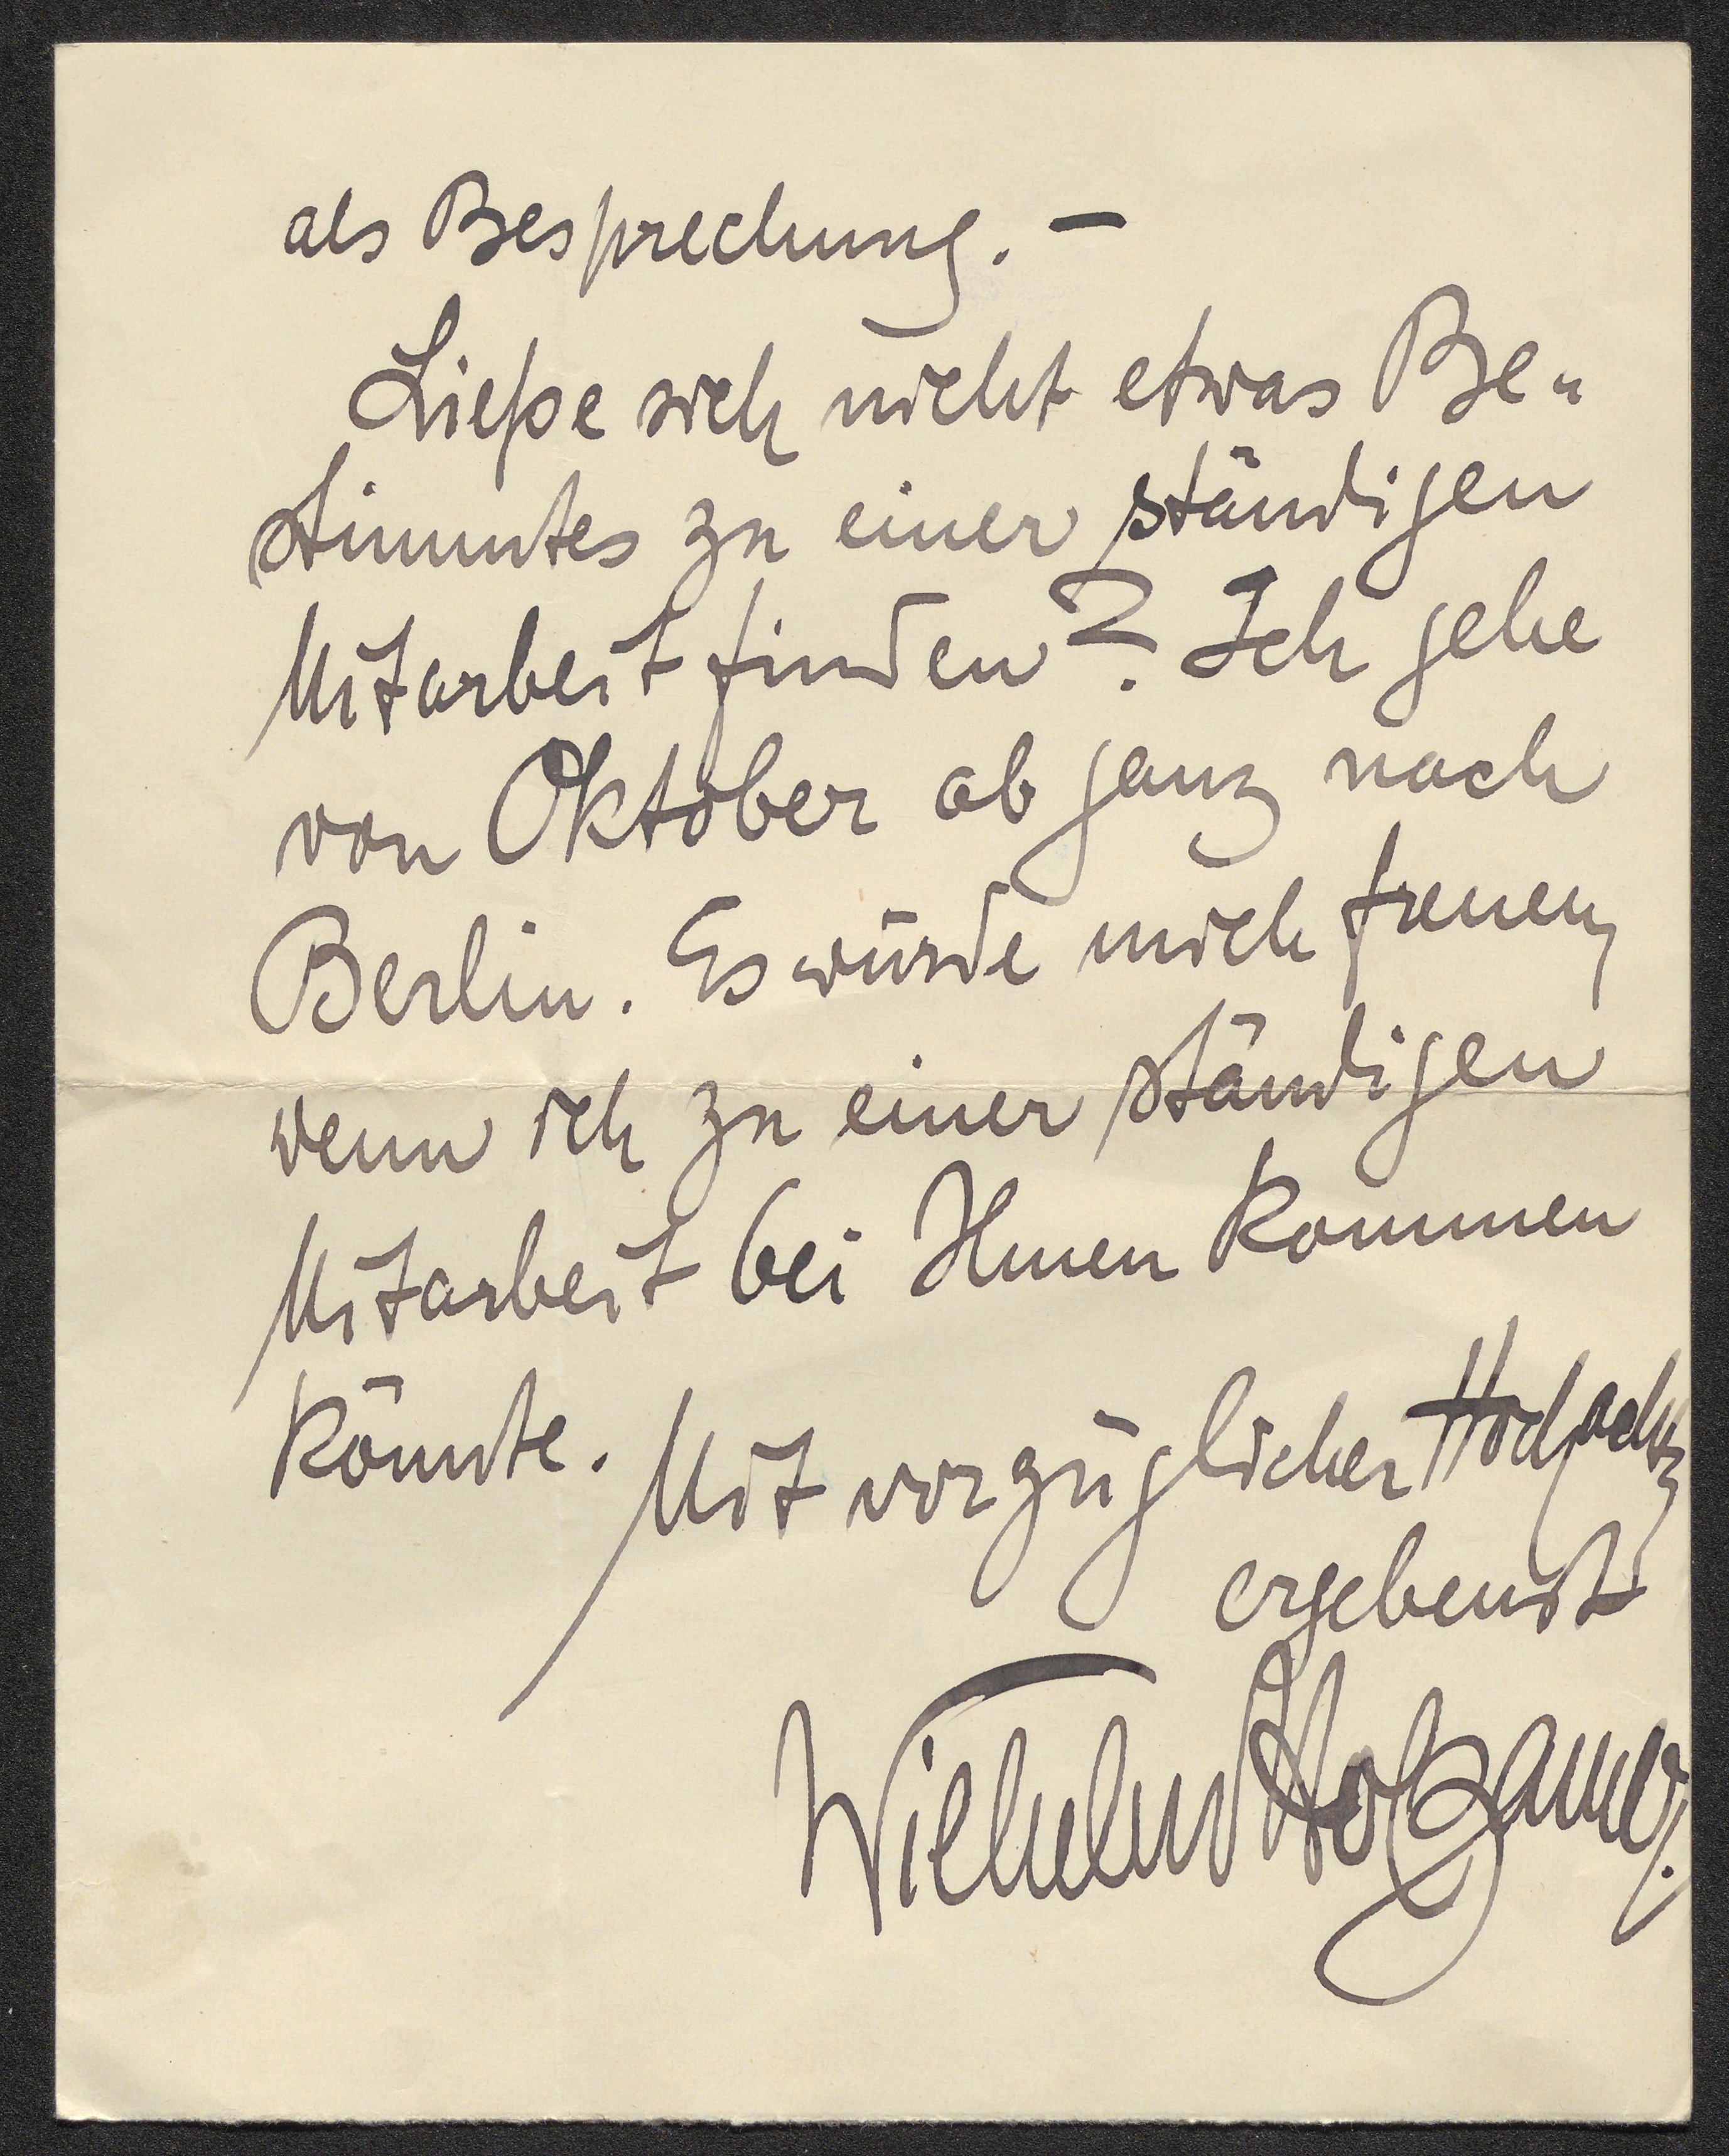 als Besprechung. —
Ließe sich nicht etwas Be-
stimmtes zu einer ständigen
Mitarbeit finden? Ich gehe
von Oktober ab ganz nach
Berlin. Es würde mich freuen,
wenn ich zu einer ständigen
Mitarbeit bei Ihnen kommen
könnte. Mit vorzüglicher Hochachtg
ergebenst
Wilhelm Holzamer.